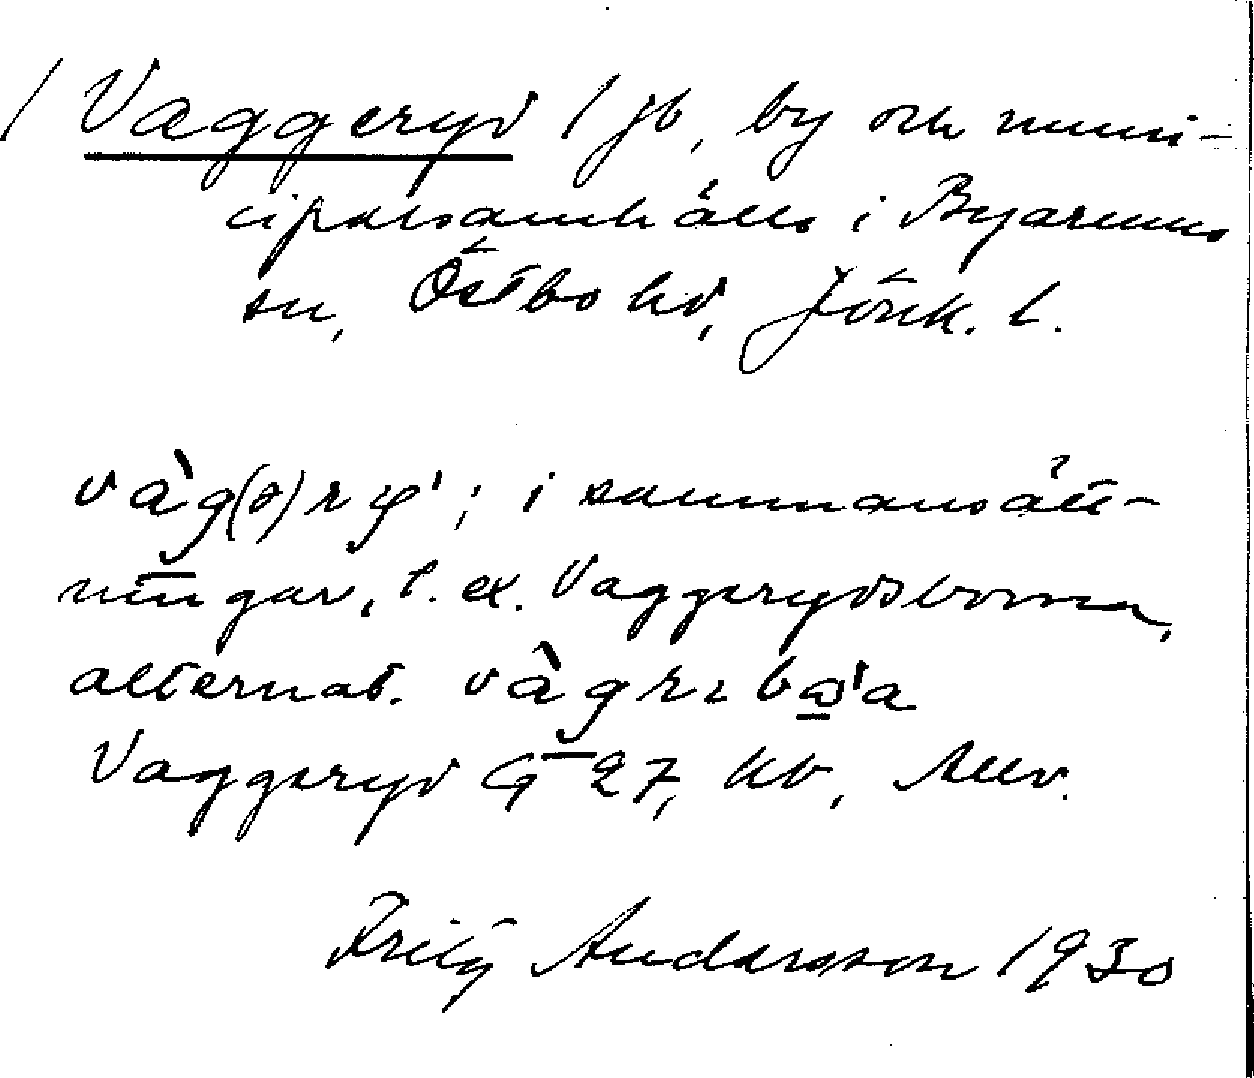 / Vaggeryd / jb, by och muni-
cipalsamhälle i Byarums
sn, Östbo hd, Jönk. l.
vàg(ə)ry'; i sammansätt-
ningar, t. ex. Vaggerydsborna,
alternat. vàgrɪ bω'a
Vaggeryd G 27, kb,
Fritz Andersson 1930